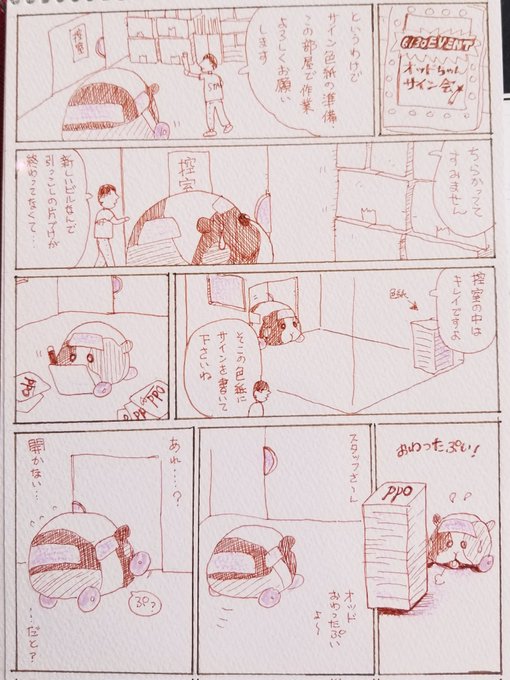 6/30 EVENT
オッドちゃん
サイン会
というわけで
サイン色紙の準備
この部屋で作業
よろしくお願い
します
控室
STAFF
ちらかってて
すみません
控室
新しいビルなんで
引っこしの片づけが
終わってなくて…
控室の中は
キレイですよ
色紙
そこの色紙に
サインを書いて
下さいね
PPO
PPO
PP
おわったぷい!
PPO
スタッフさーん
オッド
おわったぷい
よ〜
あれ…?
ぷっ
開かない…
…だと?